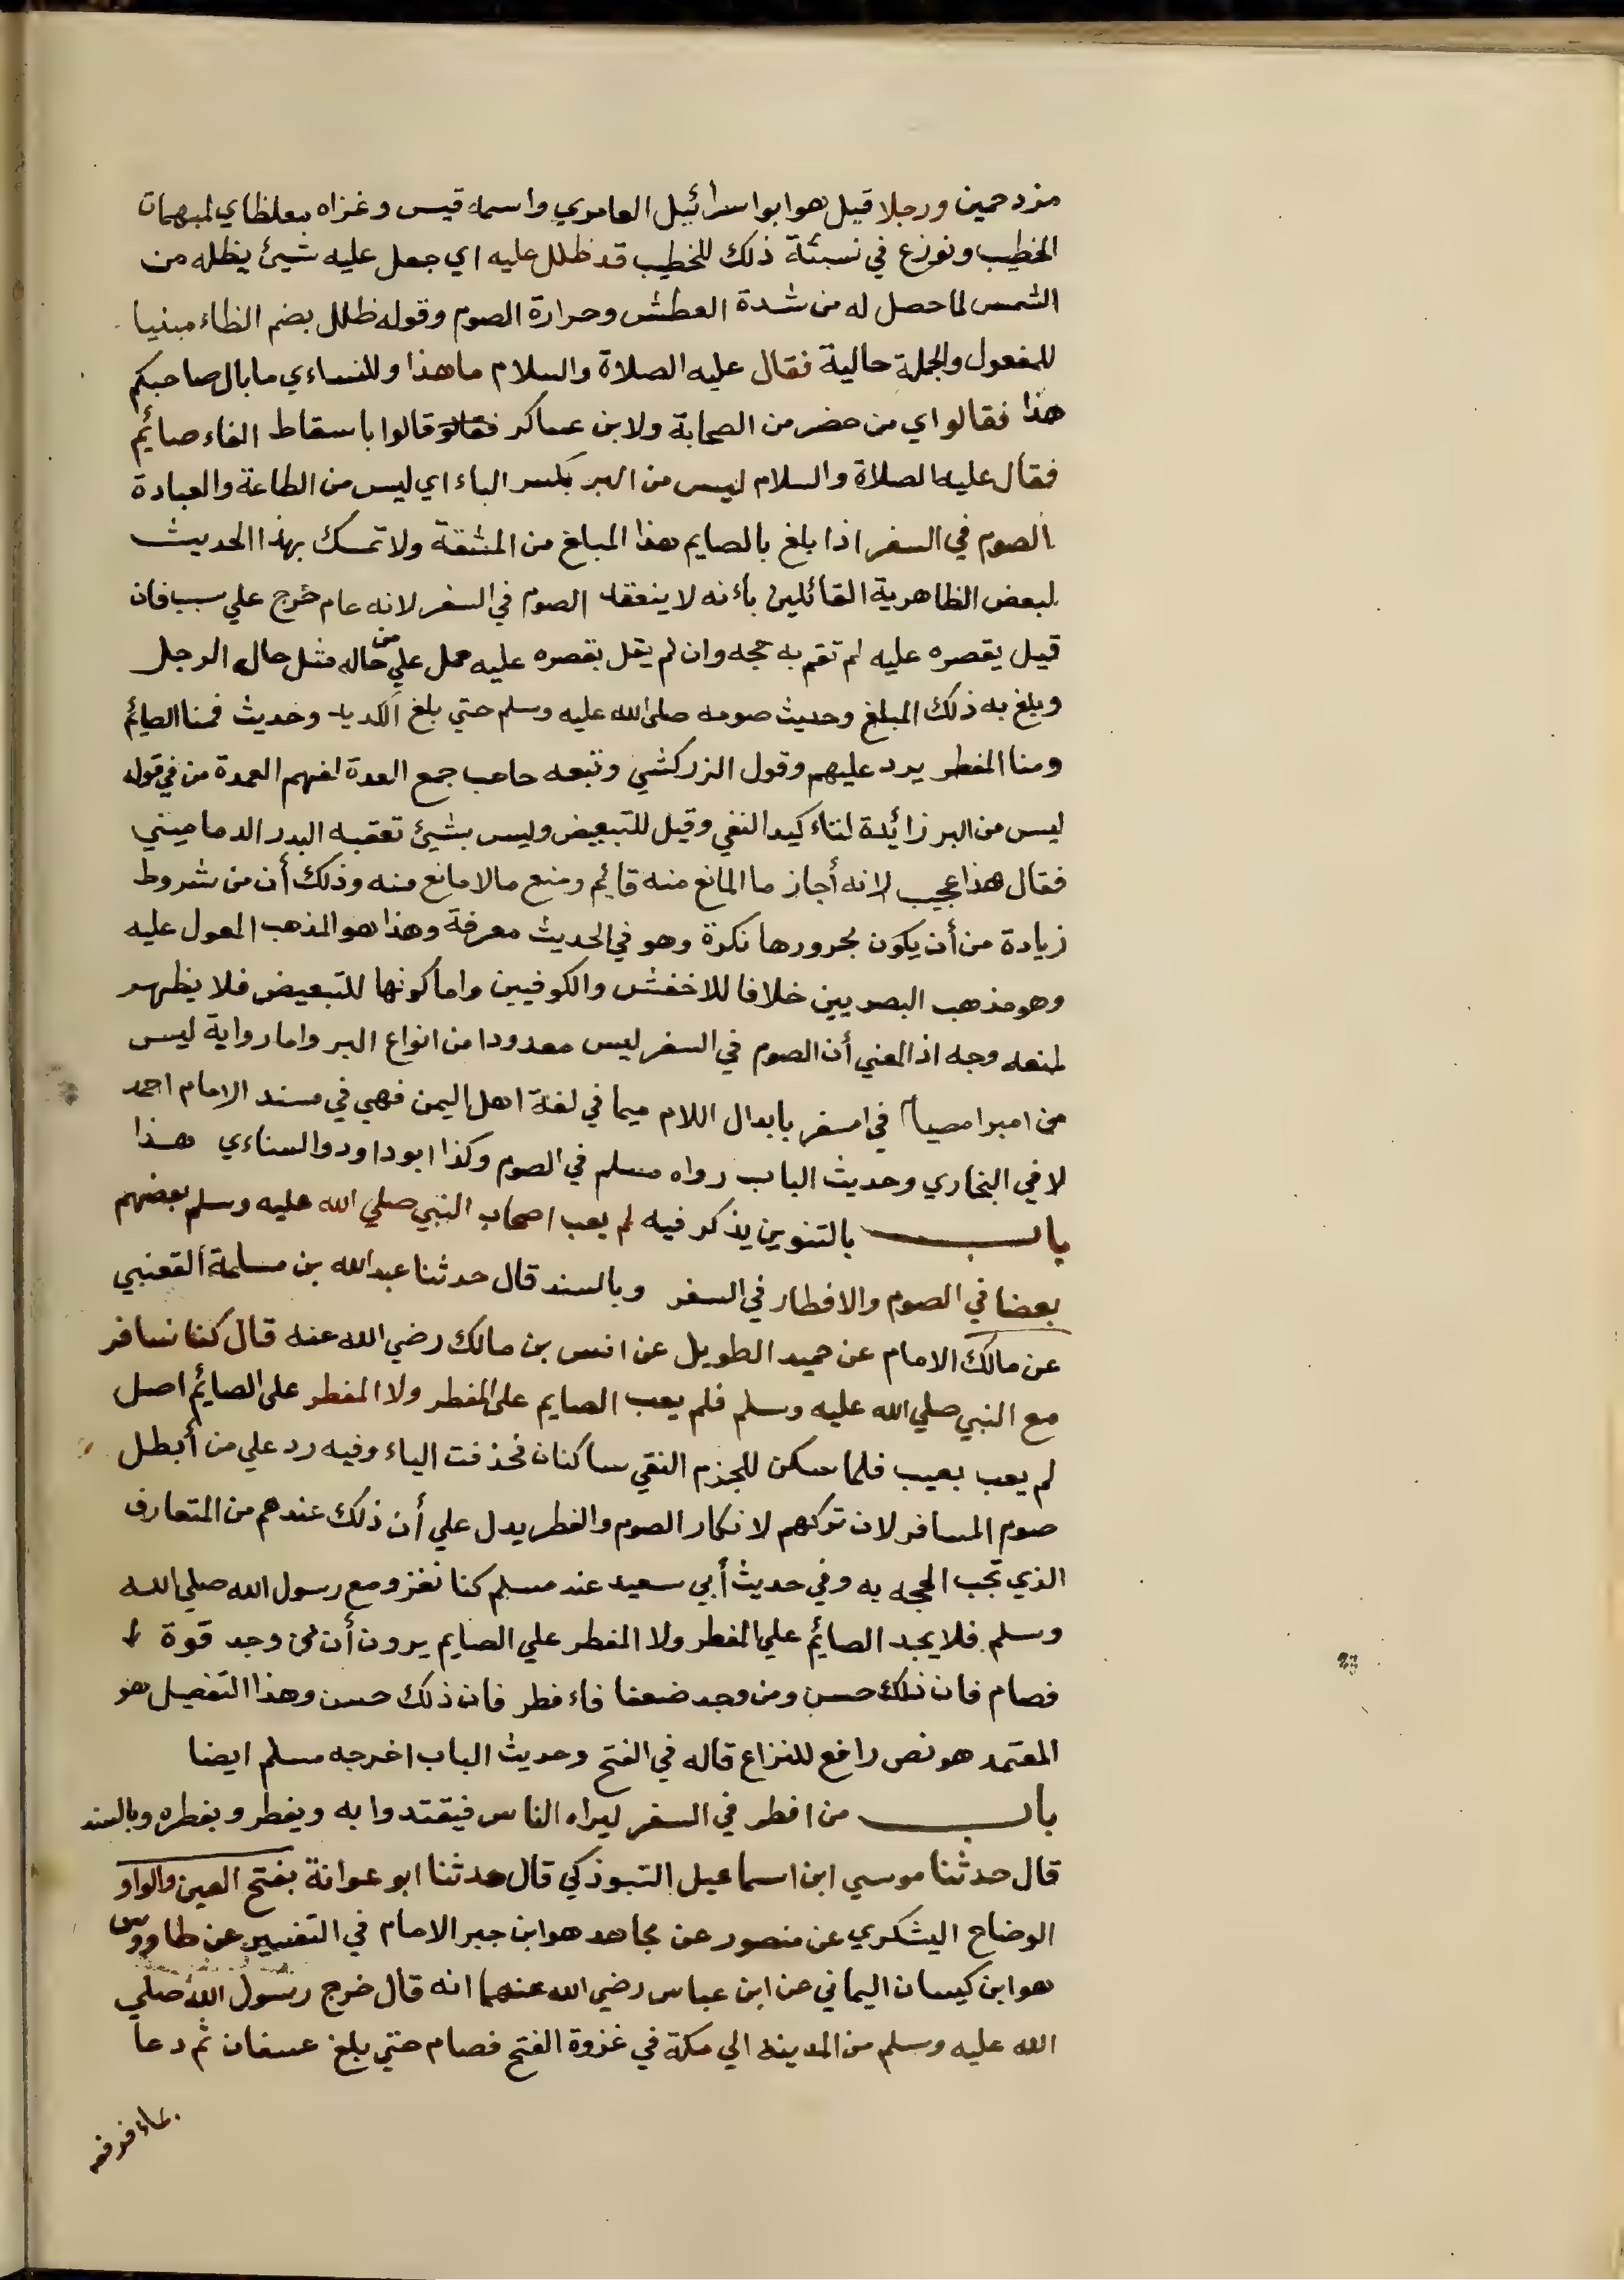 مزدحمين ورجلا قيل هو ابو اسرائيل العامري واسمه قيس وغزاه مغلظاي لمبهمات
الخطيب ونوزع في نسبتة ذلك للخطيب قد ظلل عليه اي جعل عليه شيئ يظله من
الشمس لما حصل له من شدة العطش وحرارة الصوم وقوله ظلل بضم الظاء مبنيا
للمفعول والجملة حالية فقال عليه الصلاة والسلام ما هذا وللنساءي ما بال صاحبكم
هذا فقالوا اي من حضر من الصحابة ولابن عساكر قالوا باسقاط الفاء صائم
فقال عليه الصلاة والسلام ليس من البر بكسر الباء اي ليس من الطاعة والعبادة
الصوم في السفر اذا بلغ بالصايم هذا المبلغ من المشقة ولا تمسك بهذا الحديث
لبعض الظاهرية القائلين باءنه لا ينعقد الصوم في السفر لانه عام خرج علي سبب فان
قيل يقصره عليه لم تقم به حجه وان لم يقل بقصره عليه حمل علي من حاله مثل حال الرجل
وبلغ به ذلك المبلغ وحديث صومه صلى الله عليه وسلم حتي بلغ الكديد وحديث فمنا الصائم
ومنا المفطر يرد عليهم وقول الزركشي وتبعه صاحب جمع العدة لفهم العمدة من في قوله
ليس من البر زائدة لتاءكيد النفي وقيل للتبعيض وليس بشيئ تعقبه البدر الدماميني
فقال هذا عجيب لانه أجاز ما المانع منه قائم ومنع مالا مانع منه وذلك أن من شروط
زيادة من أن يكون مجرورها نكرة وهو في الحديث معرفة وهذا هو المذهب المعول عليه
وهو مذهب البصريين خلافا للاخفش والكوفيين واما كونها للتبعيض فلا يظهر
لمنعه وجه اذ المعني أن الصوم في السفر ليس معدودا من انواع البر واما رواية ليس
من امبر امصيام في امسفر بابدال اللام ميما في لغة اهل اليمن فهي في مسند الامام احمد
لا في البخاري وحديث الباب رواه مسلم في الصوم وكذا ابو داود والنساءي هذا
باب بالتنوين يذكر فيه لم يعب اصحاب النبي صلي الله عليه وسلم بعضهم
بعضا في الصوم والافطار في السفر وبالسند قال حدثنا عبد الله بن مسلمة القعنبي
عن مالك الامام عن حميد الطويل عن انس بن مالك رضي الله عنه قال كنا نسافر
مع النبي صلي الله عليه وسلم فلم يعب الصايم على المفطر ولا المفطر على الصائم اصل
لم يعب يعيب فلما سكن للجزم التقي ساكنان فحذفت الياء وفيه رد علي من أبطل
صوم المسافر لان تركهم لانكار الصوم والفطر يدل علي أن ذلك عندهم من المتعارف
الذي تجب الحجه به وفي حديث أبي سعيد عند مسلم كنا نغزو مع رسول الله صلي الله
وسلم فلا يجد الصائم علي المفطر ولا المفطر علي الصايم يرون أن من وجد قوة
فصام فان ذلك حسن ومن وجد ضعفا فاءفطر فان ذلك حسن وهذا التفصيل هو
المعتمد هو نص رافع للنزاع قاله في الفتح وحديث الباب اخرجه مسلم ايضا
باب من افطر في السفر ليراه الناس فيقتدوا به ويفطر وبفطره وبالسند
قال حدثنا موسي ابن اسماعيل التبوذكي قال حدثنا ابو عوانة بفتح العين والواو
الوضاح اليشكري عن منصور عن مجاهد هو ابن جبر الامام في التفسير عن طاووس
هو ابن كيسان اليماني عن ابن عباس رضي الله عنهما انه قال خرج رسول الله صلي
الله عليه وسلم من المدينه الي مكة في غزوة الفتح فصام حتي بلغ عسفان ثم دعا
بماء فرفعه